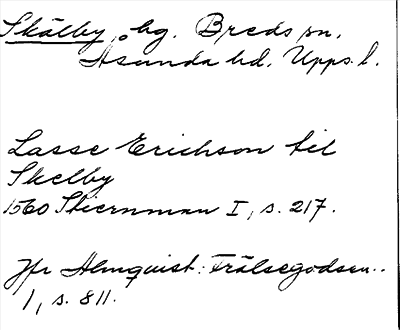 Skälby, bg. Breds sn,
Åsunda hd. Upps. l.
Lasse Erichson til
Skelby
1560 Stiernman I, s. 217.
Jfr Almquist: Frälsegodsen..
1, s. 811.